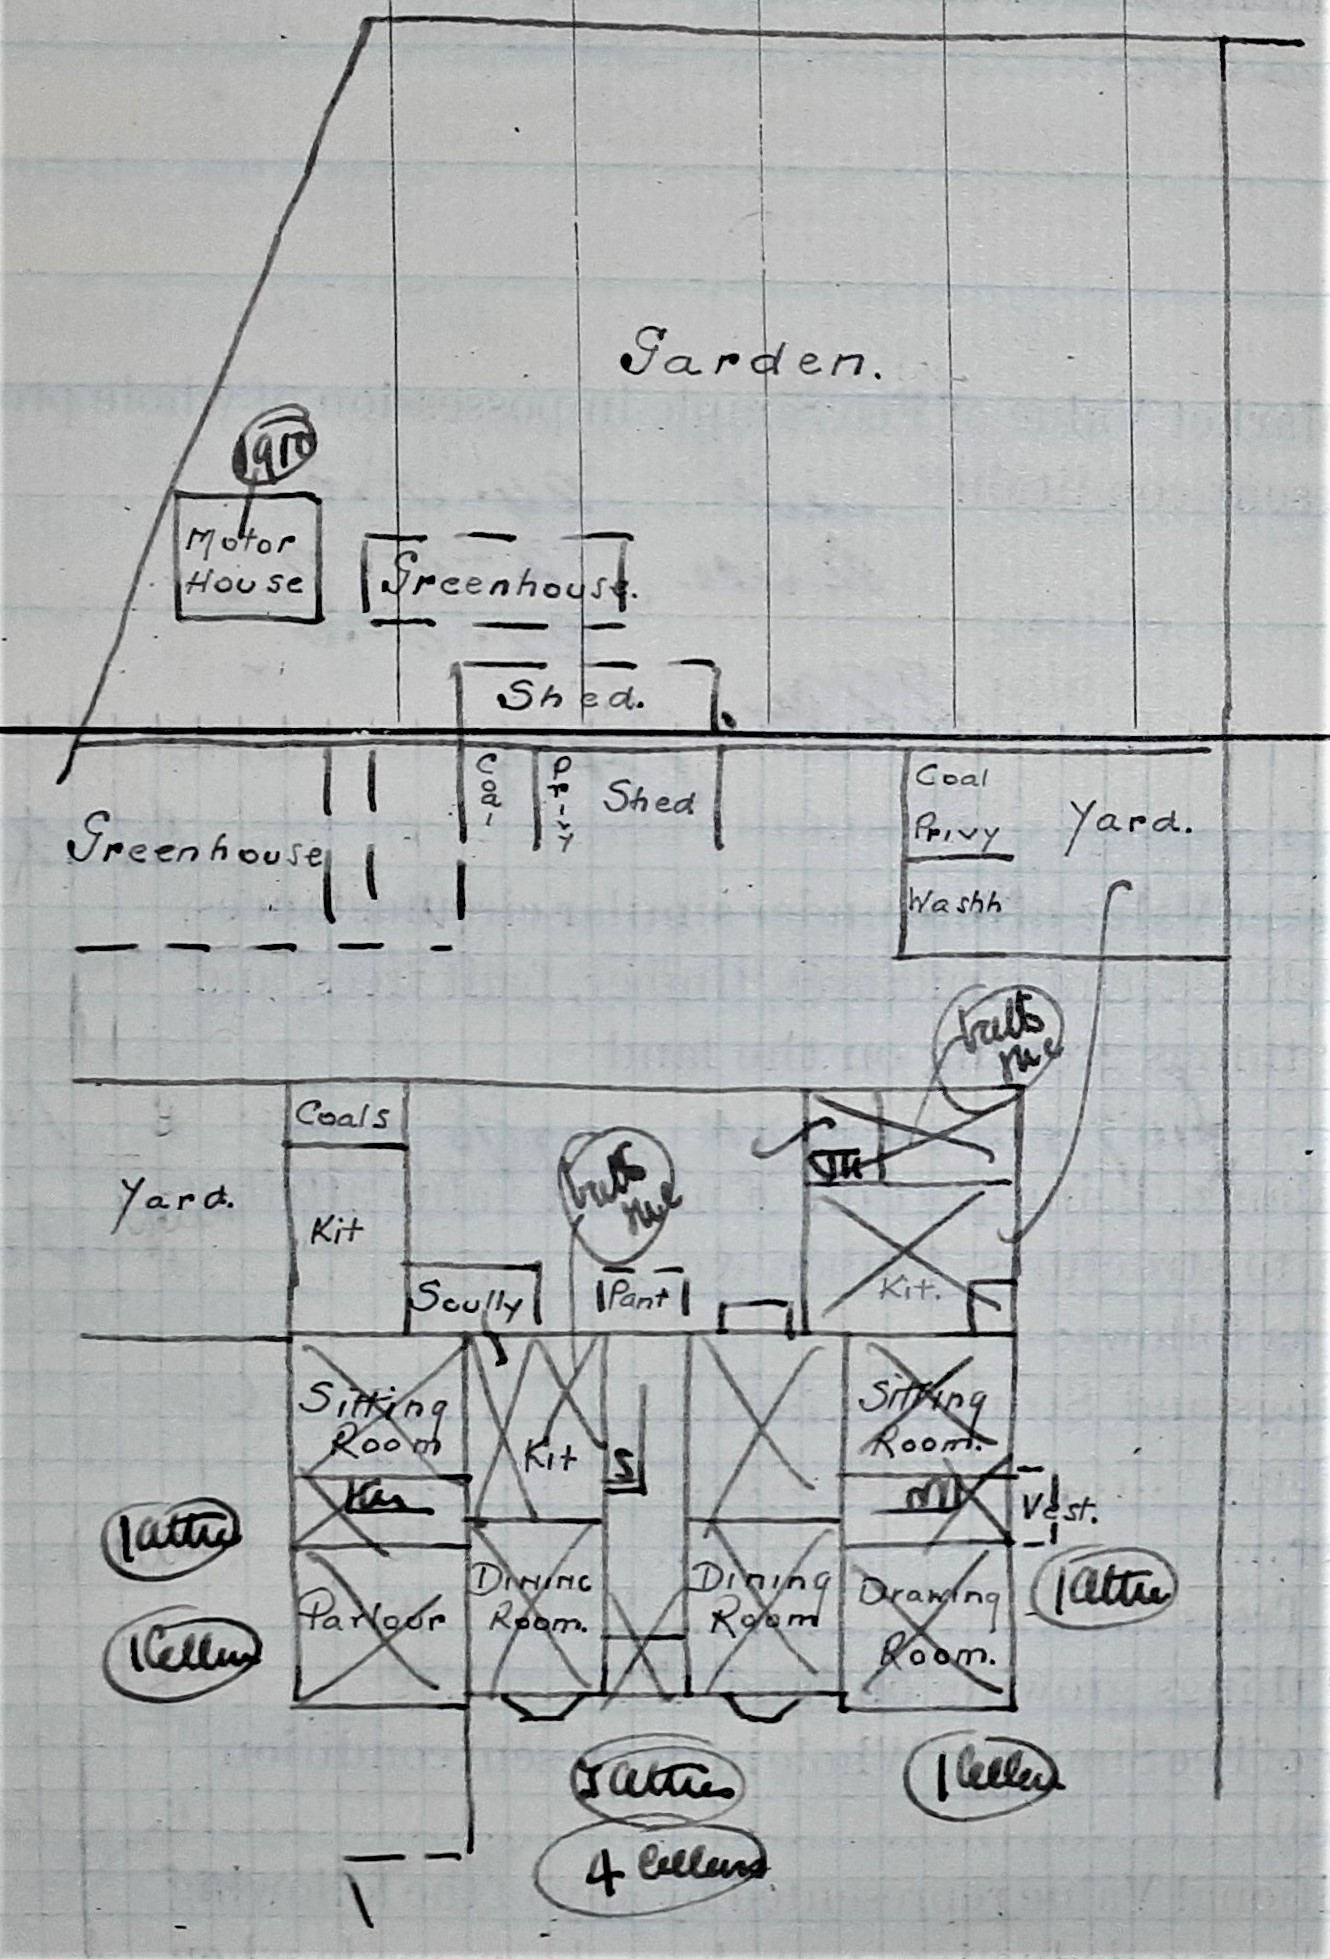 Garden.
Motor
House
Greenhouse.
Shed.
Coal
Privy
Shed
Coal
Privy
Yard.
Washh
Greenhouse
Coals
Yard.
Kit
Sculy
Pant
Kit.
Sitting
Room
Kit
S
Sitting
Room.
Vest.
1 attic
Dining
Room.
Dining
Room
Drawing
Room.
1 attic
Parlour
1 Cellar
attics
1 Cellar
4 Cellars